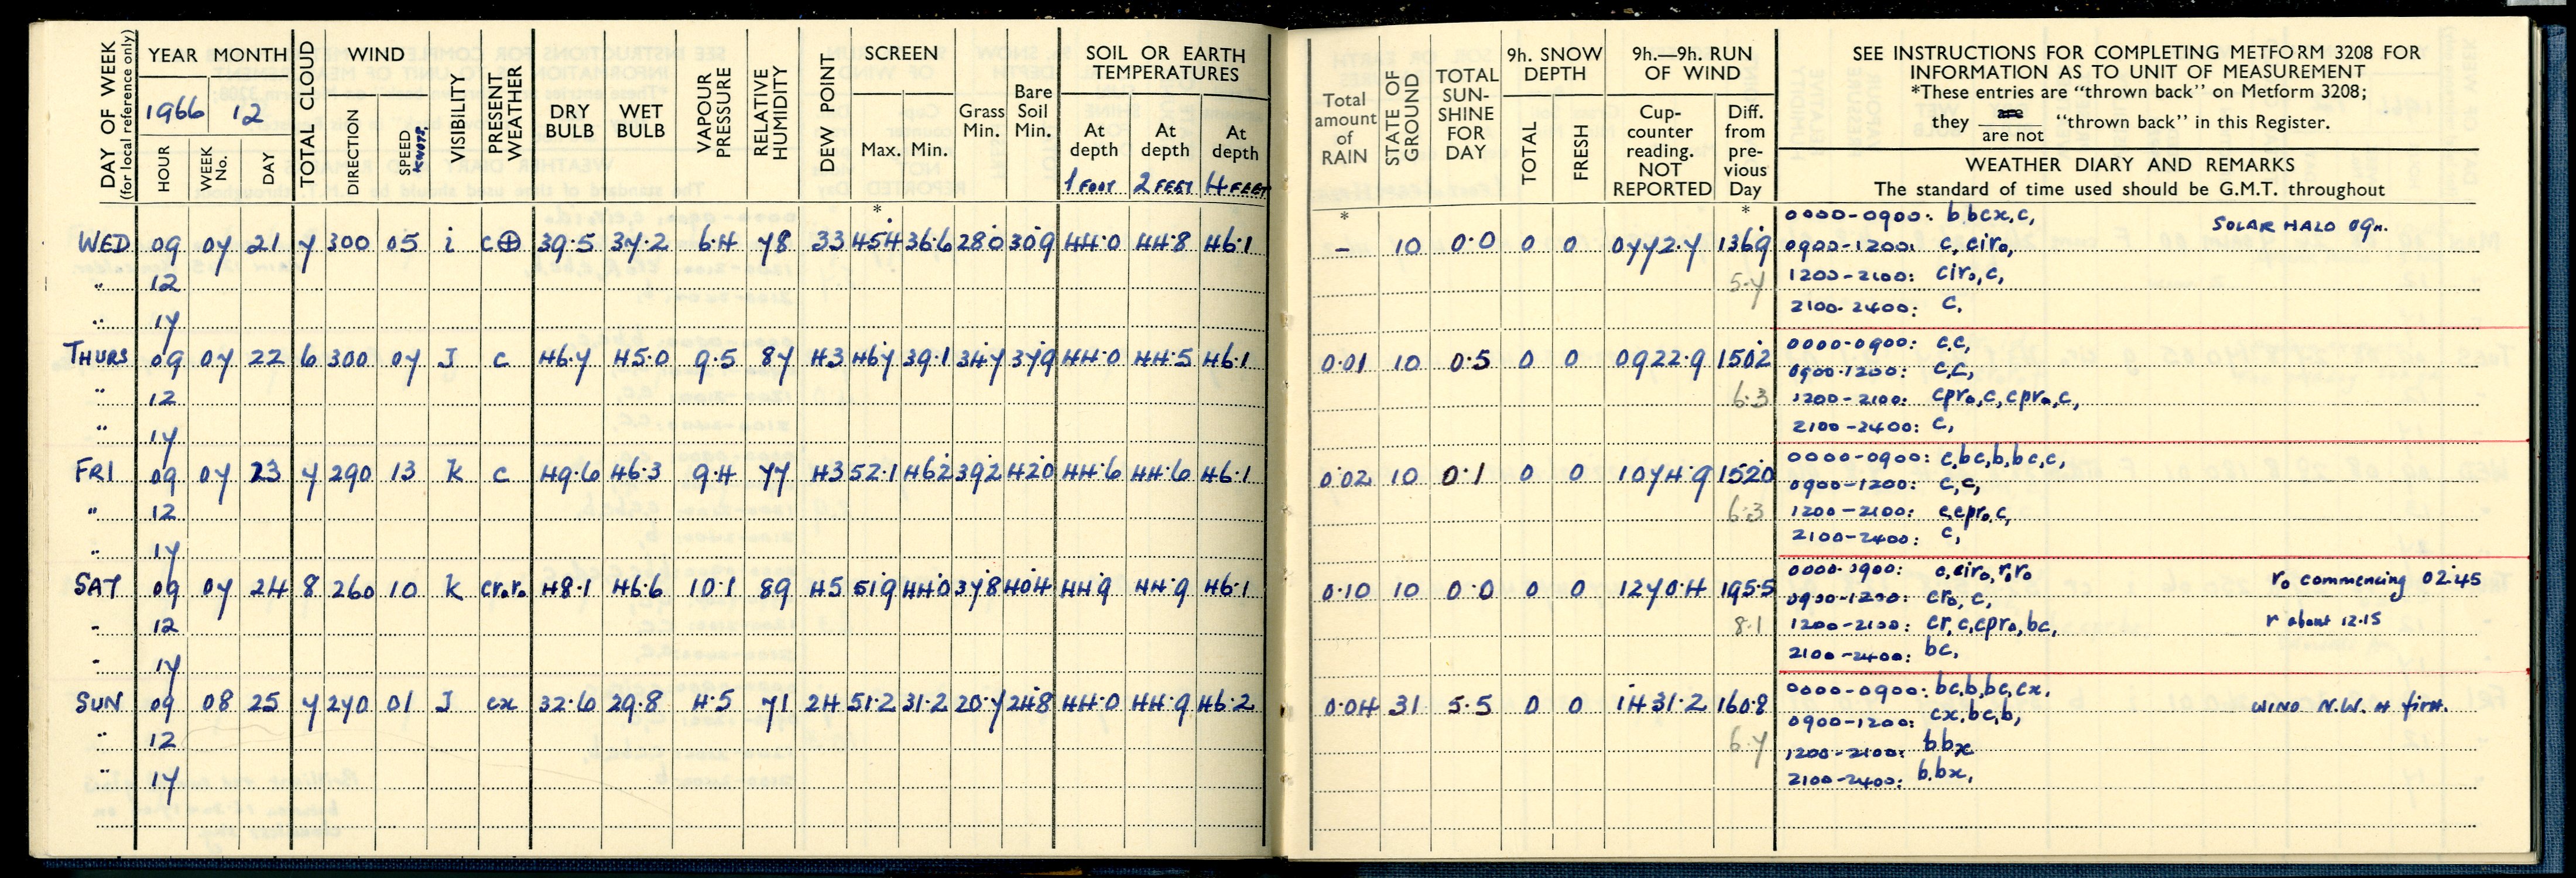 DAY OF WEEK (for local reference only) YEAR MONTH TOTAL CLOUD WIND VISIBILITY PRESENT WEATHER DRY BULB WET BULB VAPOUR PRESSURE RELATIVE HUMIDITY DEW POINT SCREEN Grass Min. Bare Soil Min. SOIL OR EARTH TEMPERATURES
1966 12
HOUR WEEK No. DAY DIRECTION SPEED KNOTS Max. Min. At depth At depth At depth
1 FOOT 2 FEET 4 FEET
*
WED 09 07 21 7 300 05 i c⊕ 39.5 37.2 6.4 78 33 45.4 36.6 28.0 30.9 44.0 44.8 46.1
" 12
" 17
THURS 09 07 22 6 300 07 J c 46.7 45.0 9.5 87 43 46.7 39.1 34.7 37.9 44.0 44.5 46.1
" 12
" 17
FRI 09 07 23 7 290 13 K c 49.6 46.3 9.4 77 43 52.1 46.2 39.2 42.0 44.6 44.6 46.1
" 12
" 17
SAT 09 07 24 8 260 10 K cr.r. 48.1 46.6 10.1 89 45 51.9 44.0 37.8 40.4 44.9 44.9 46.1
" 12
" 17
SUN 09 08 25 7 270 01 J cx 32.6 29.8 4.5 71 24 51.2 31.2 20.7 24.8 44.0 44.9 46.2
" 12
" 17
Total amount of RAIN STATE OF GROUND TOTAL SUN-SHINE FOR DAY 9h. SNOW DEPTH 9h.—9h. RUN OF WIND
TOTAL FRESH Cup-counter reading. NOT REPORTED Diff. from pre-vious Day
SEE INSTRUCTIONS FOR COMPLETING METFORM 3208 FOR
INFORMATION AS TO UNIT OF MEASUREMENT
*These entries are "thrown back" on Metform 3208;
they are / are not "thrown back" in this Register.
WEATHER DIARY AND REMARKS
The standard of time used should be G.M.T. throughout
* *
0000-0900: b bcx, c, SOLAR HALO 09h.
– 10 0.0 0 0 0772.7 136.9 0900-1200: c, ciro,
5.7 1200-2100: ciro, c,
2100-2400: c,
0000-0900: c,c,
0.01 10 0.5 0 0 0922.9 150.2 0900-1200: c,c,
6.3 1200-2100: cpro,c,cpro,c,
2100-2400: c,
0000-0900: c,bc,b,bc,c,
0.02 10 0.1 0 0 1074.9 152.0 0900-1200: c,c,
6.3 1200-2100: c,cpro,c,
2100-2400: c,
0000-0900: c,ciro,r,ro ro commencing 02.45
0.10 10 0.0 0 0 1270.4 195.5 0900-1200: cro, c,
8.1 1200-2100: cr,c,cpro,bc, r about 12.15
2100-2400: bc,
0000-0900: bc,b,bc,cx, WIND N.W. at first.
0.04 31 5.5 0 0 1431.2 160.8 0900-1200: cx,bc,b,
6.7 1200-2100: b bx
2100-2400: b,bx,